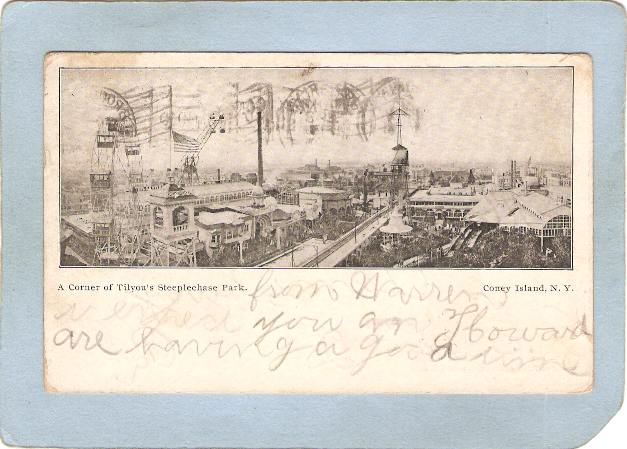 A Corner of Tilyou's Steeplechase Park. Coney Island, N. Y.
from Warren
expect you an Howard
are having a good time